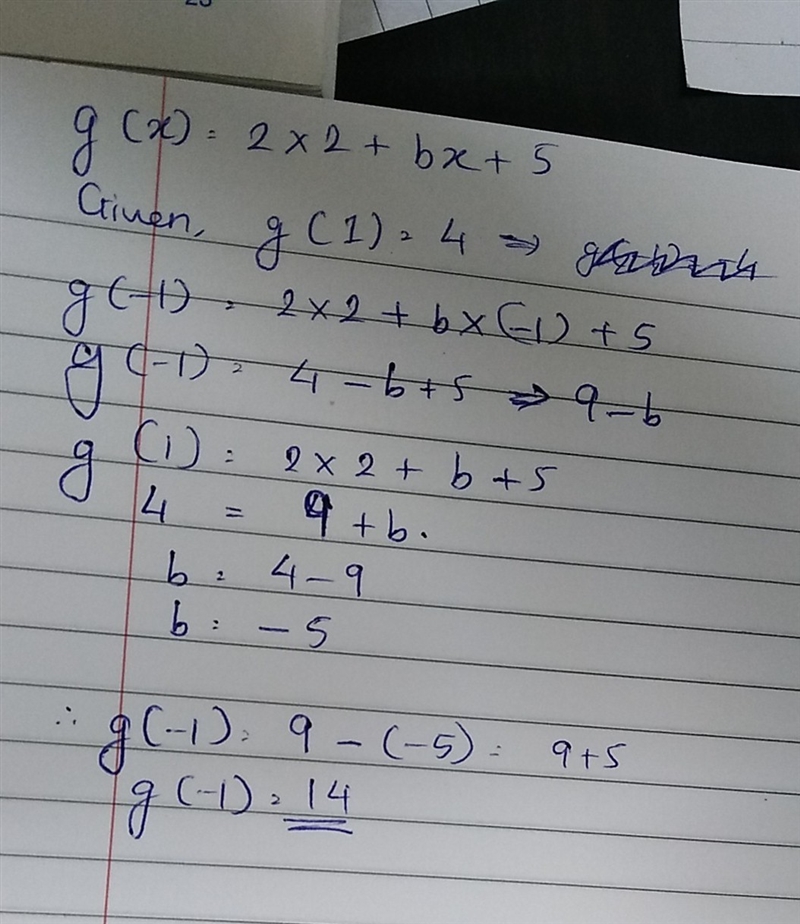 g(x) = 2 × 2 + bx + 5
Given, g(1) = 4 ⇒
g(-1) = 2×2 + b×(-1) + 5
g(-1) = 4 - b + 5 ⇒ 9 - b
g(1) = 2×2 + b + 5
4 = 9 + b.
b = 4 - 9
b = -5
∴ g(-1) = 9 - (-5) = 9+5
g(-1) = 14